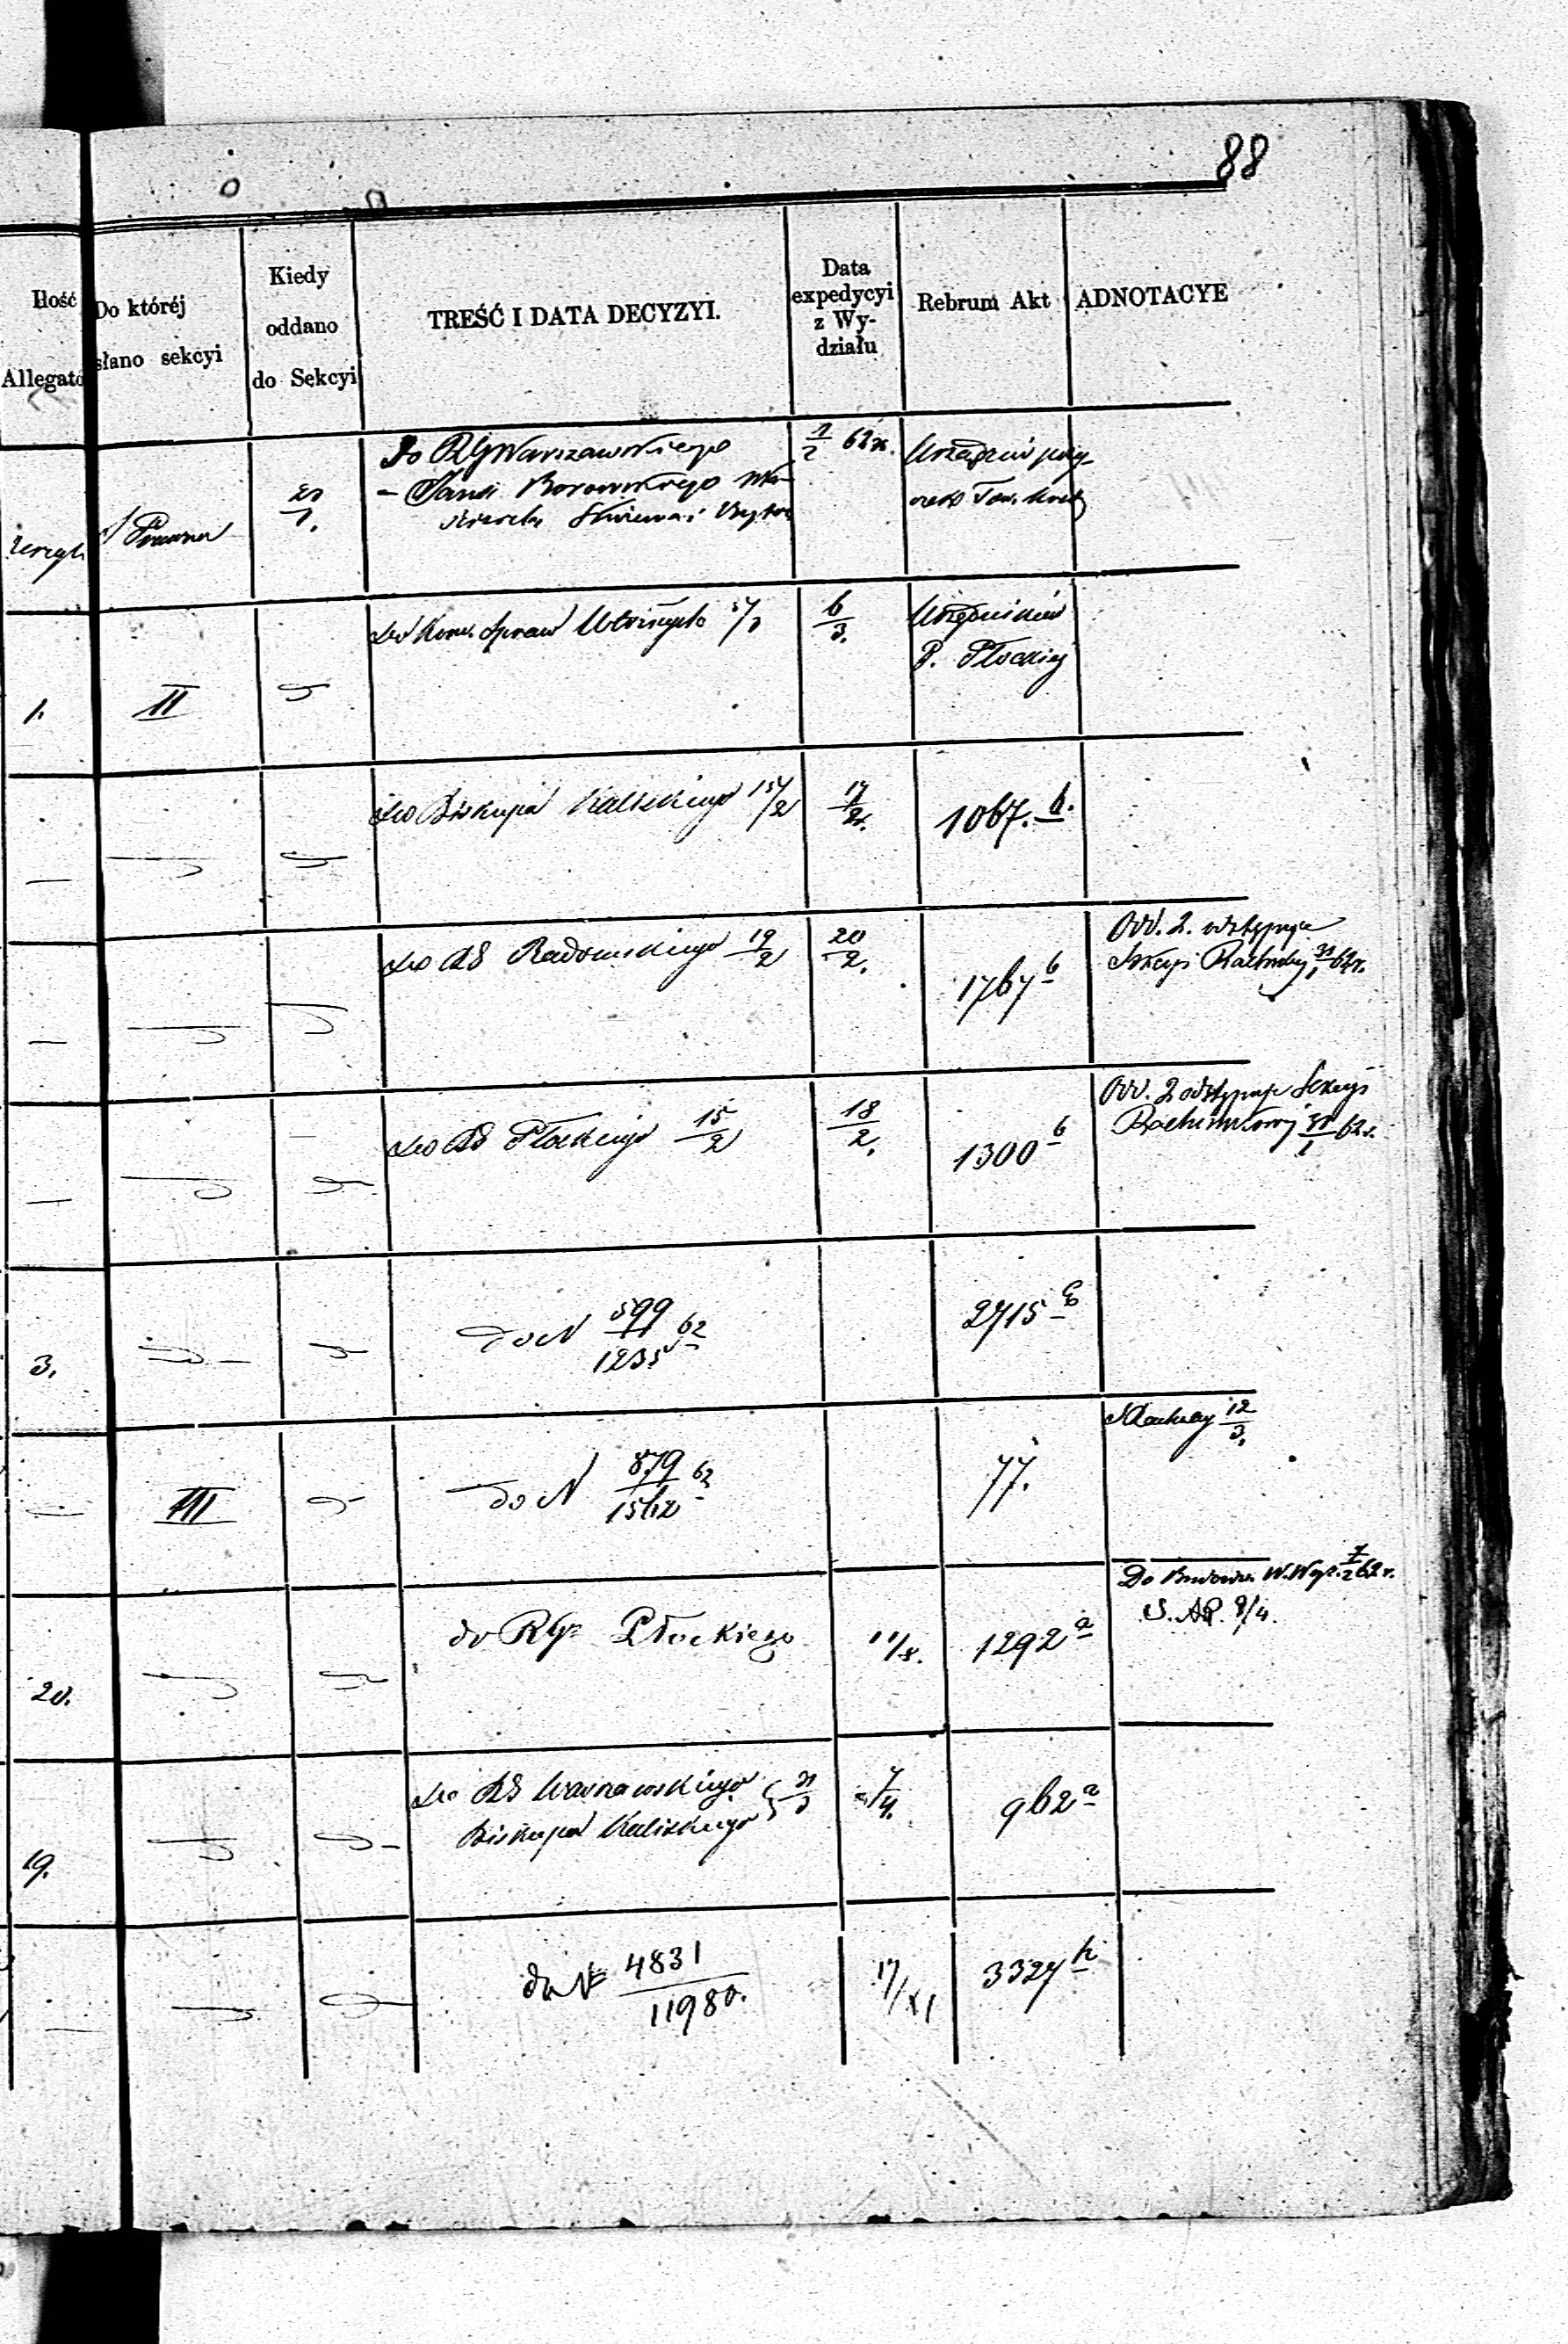 88
Ilość
Allegató
Do któréj
słano sekcyi
Kiedy
oddano
do Sekcyi
TREŚĆ I DATA DECYZYI.
Data
expedycyi
z Wy-
działu
Rebrum Akt
ADNOTACYE
Do RGWarszawskiego
Borowskiego
Prawna
1/2 62r.
Tow. Kred
1.
II
do Kom. Spraw
6/3.
Urzędników
P. Płockiej
do Biskupa Kaliskiego 15/2
17/2.
1067. b.
do RG Radomskiego 19/2
20/2.
1767 b
Odd. 2. odstępuje
Sekcyi 62r.
do RG Płockiego 15/2
18/2.
1300 b
Odd. 2 odstępuje Sekcyi
Rachunkowej 62r.
3.
do N 599/1235 62
2715
III
do N 879/1562 62
77.
12/3.
20.
do RGo Płockiego
11/X.
1292 a
Do W. Wyz. 7/2 62 r.
S. AP. 9/4.
19.
do RG Warszawskiego
Biskupa Kaliskiego
7/4.
962 a
do N 4831/11980.
17/XI
3327 h